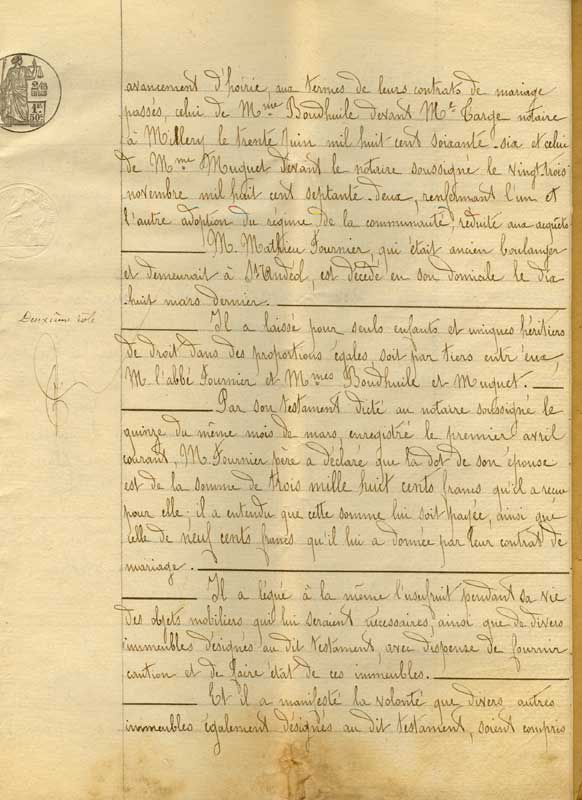 avancement d'hoirie, aux termes de leurs contrats de mariage
passés, celui de Mme Boudhuile devant Me Targe notaire
à Millery le trente Juin mil huit cent soixante-six et celui
de Mme Muguet devant le notaire soussigné le vingt-trois
novembre mil huit cent septante-deux, renfermant l'un et
l'autre adoption du régime de la communauté, réduite aux acquêts
M. Mathieu Fournier, qui était ancien boulanger
et demeurait à St Andéol, est décédé en son domicile le dix
huit mars dernier.
Deuxième rôle
Il a laissé pour seuls enfants et uniques héritiers
de droit dans des proportions égales, soit par tiers entr'eux,
M. l'abbé Fournier et Mmes Boudhuile et Muguet.
Par son testament dicté au notaire soussigné le
quinze du même mois de mars, enregistré le premier avril
courant, M. Fournier père a déclaré que la dot de son épouse
est de la somme de trois mille huit cents francs qu'il a reçue
pour elle; il a entendu que cette somme lui soit payée, ainsi que
celle de neuf cents francs qu'il lui a donnée par leur contrat de
mariage.
Il a légué à la même l'usufruit pendant sa vie
des objets mobiliers qui lui seraient nécessaires, ainsi que de divers
immeubles désignés au dit testament, avec dispense de fournir
caution et de faire état de ces immeubles.
Et il a manifesté la volonté que divers autres
immeubles également désignés au dit testament, soient compris